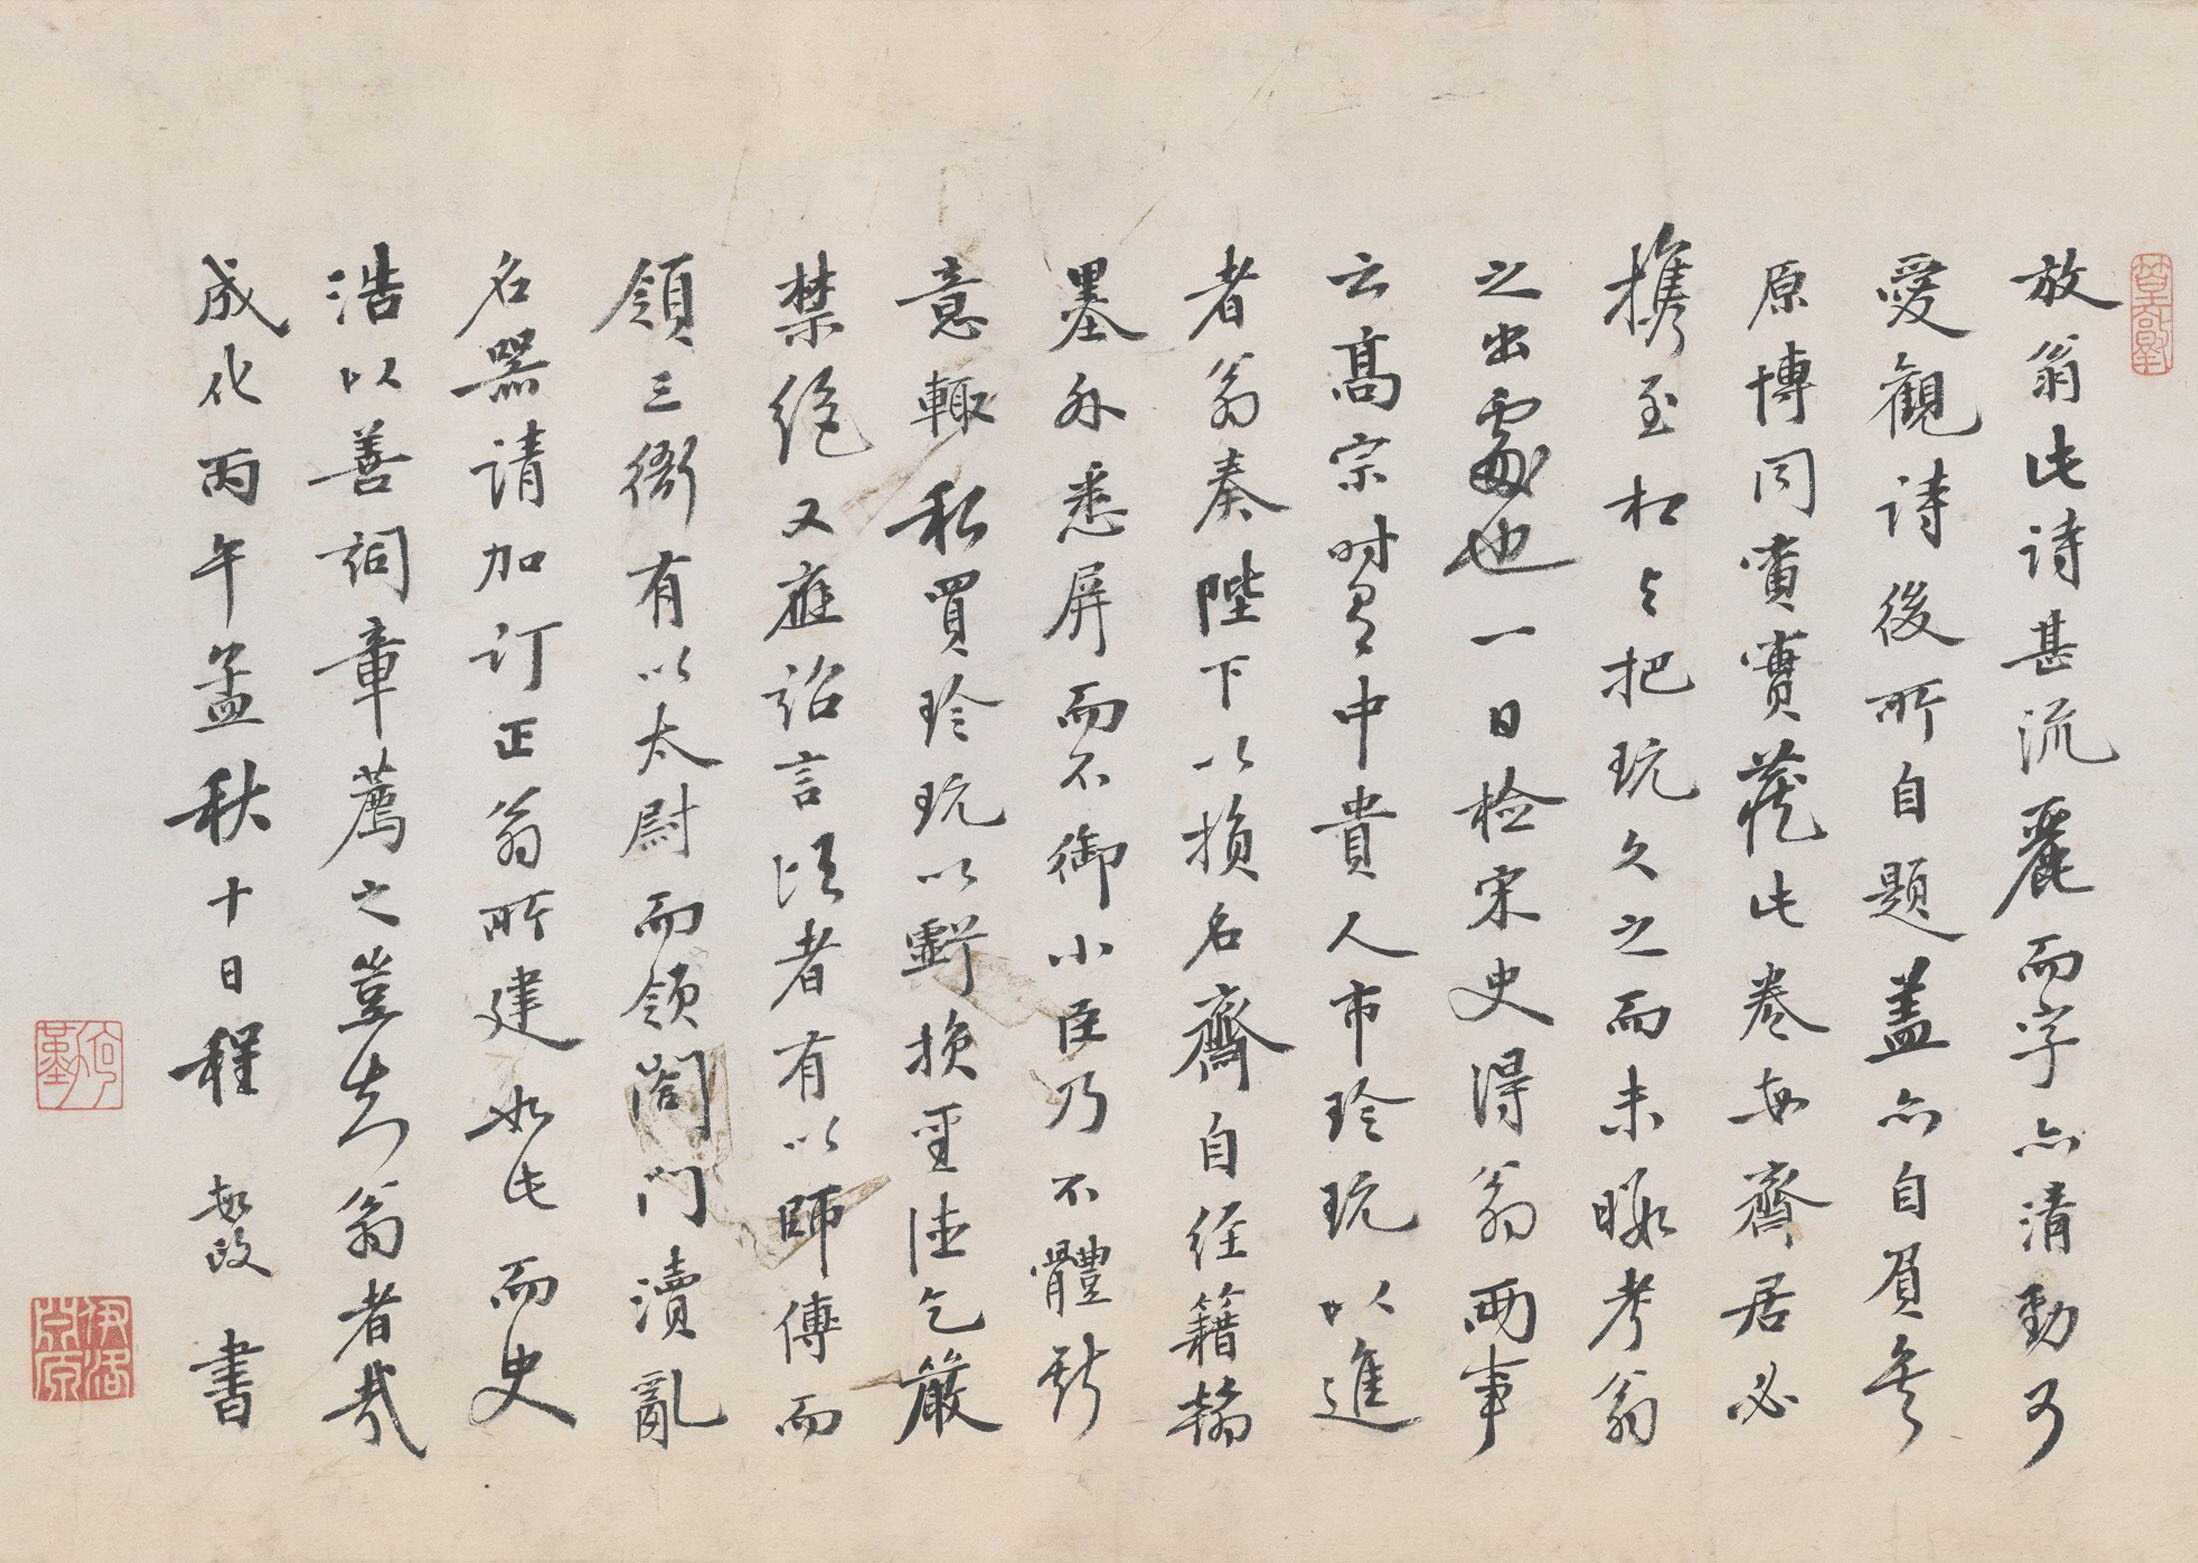 放翁此詩甚流麗而字亦清勁可
愛觀詩後所自題蓋亦自負矣
原博同寅寶藏此卷每齋居必
攜至相與把玩久之而未暇考翁
之出處也一日檢宋史得翁兩事
云高宗時有中貴人市珍玩以進
者翁奏陛下以損名齋自經籍翰
墨外悉屏而不御小臣乃不體聖
意輒私買珍玩以虧損聖德乞嚴
禁絕又應詔言頃者有以師傅而
領三衙有以太尉而領閤門瀆亂
名器請加訂正翁所建如此而史
浩以善詞章薦之豈知翁者哉
成化丙午孟秋十日程敏政書